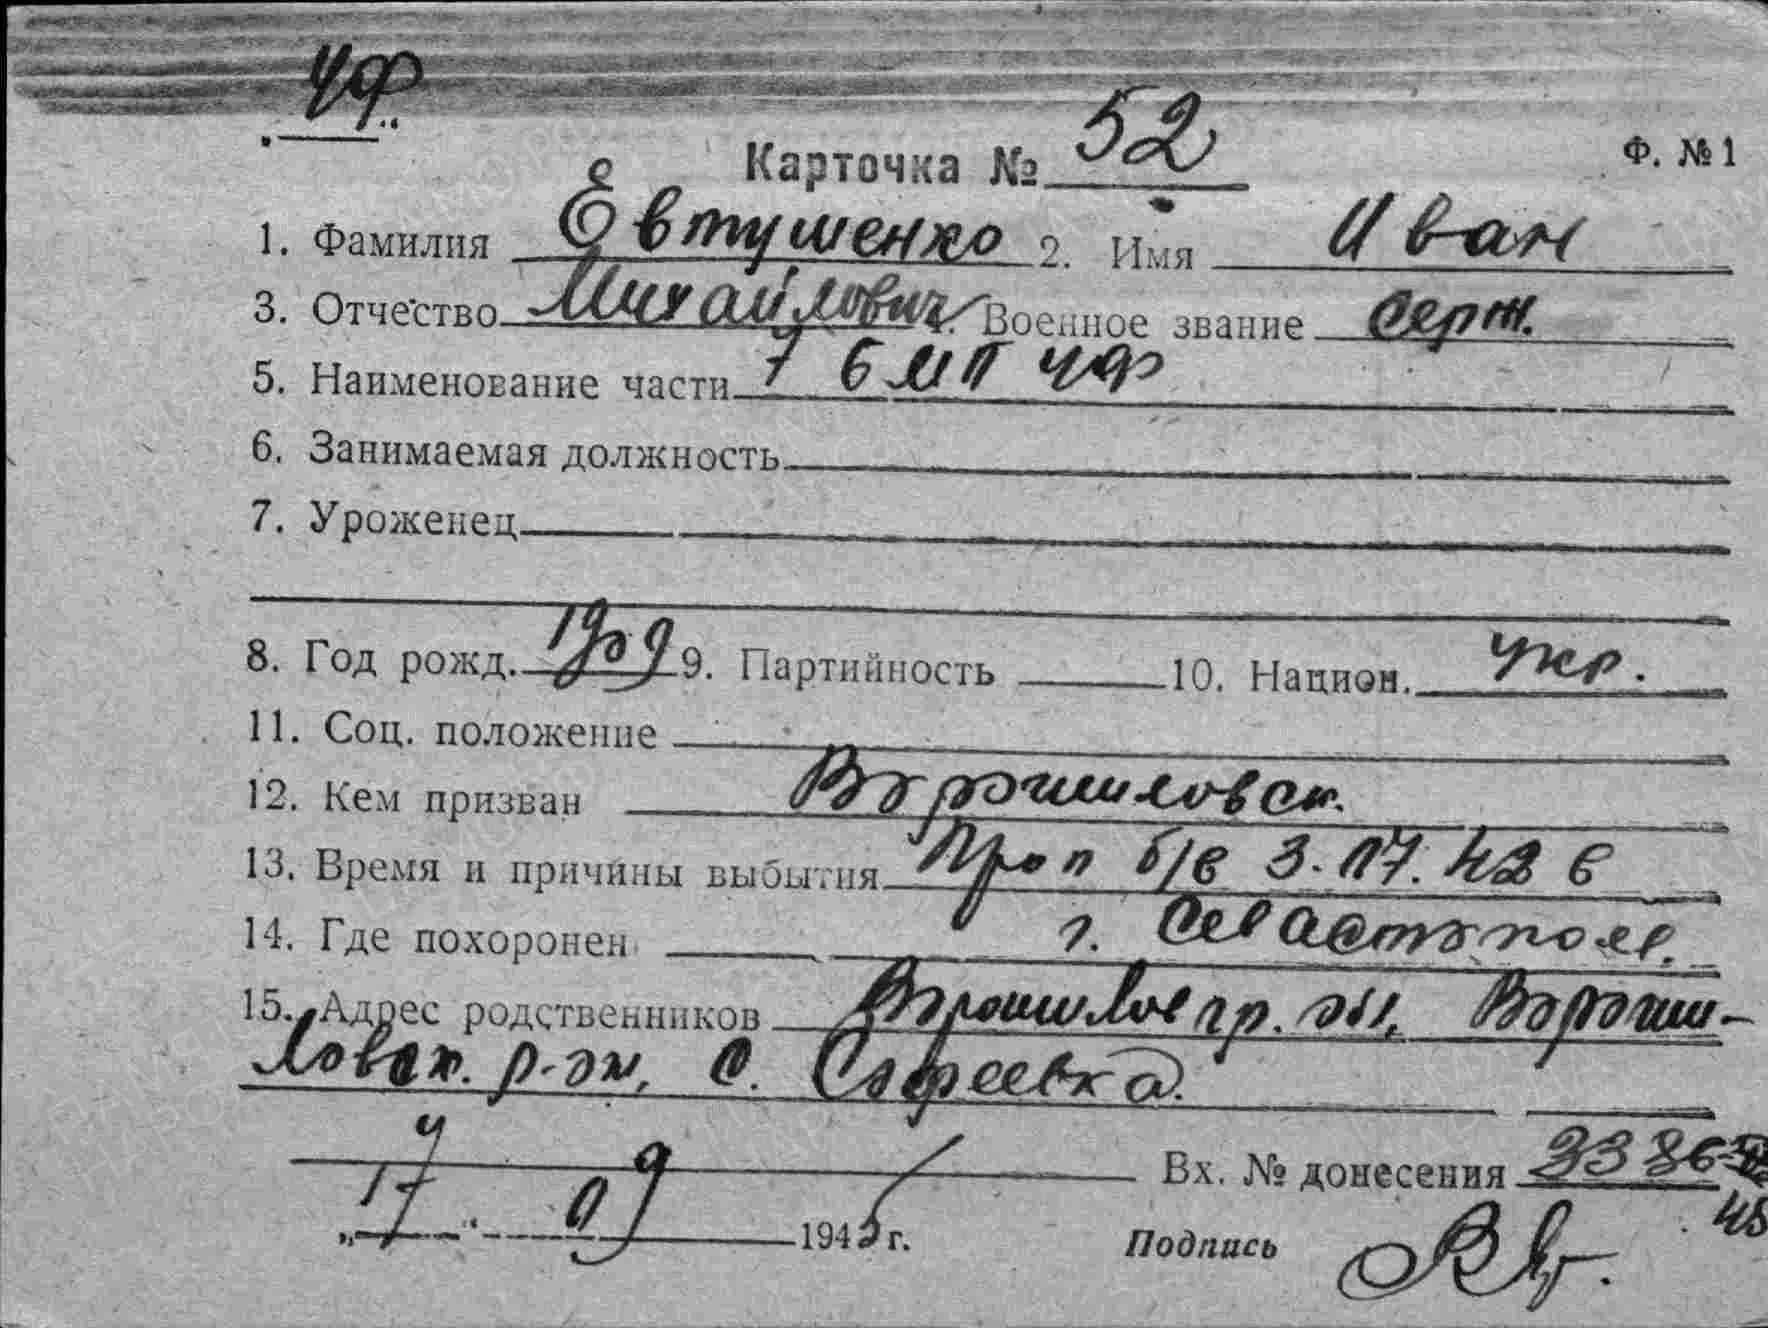 ЧФ
Карточка № 52
Ф. № 1
1. Фамилия Евтушенко 2. Имя Иван
3. Отчество Михайлович. Военное звание Серж.
5. Наименование части 7 БМП ЧФ
6. Занимаемая должность
7. Уроженец
8. Год рожд. 1909 9. Партийность 10. Национ. Укр.
11. Соц. положение
12. Кем призван Ворошиловск.
13. Время и причины выбытия Проп б/в 3.07.42 в
14. Где похоронен г. Севастополе.
15. Адрес родственников Ворошиловгр. обл, Вороши-
ловск. р-он, с.
Вх. № донесения
„17" 09 1945 г.
Подпись